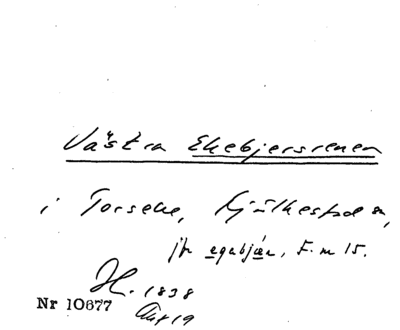 Västra Ekebjersrenen
i Torseke, Fjälkestad sn,
jfr egabjär, F. m 15.
H. 1838
Akt 19
Nr 10677